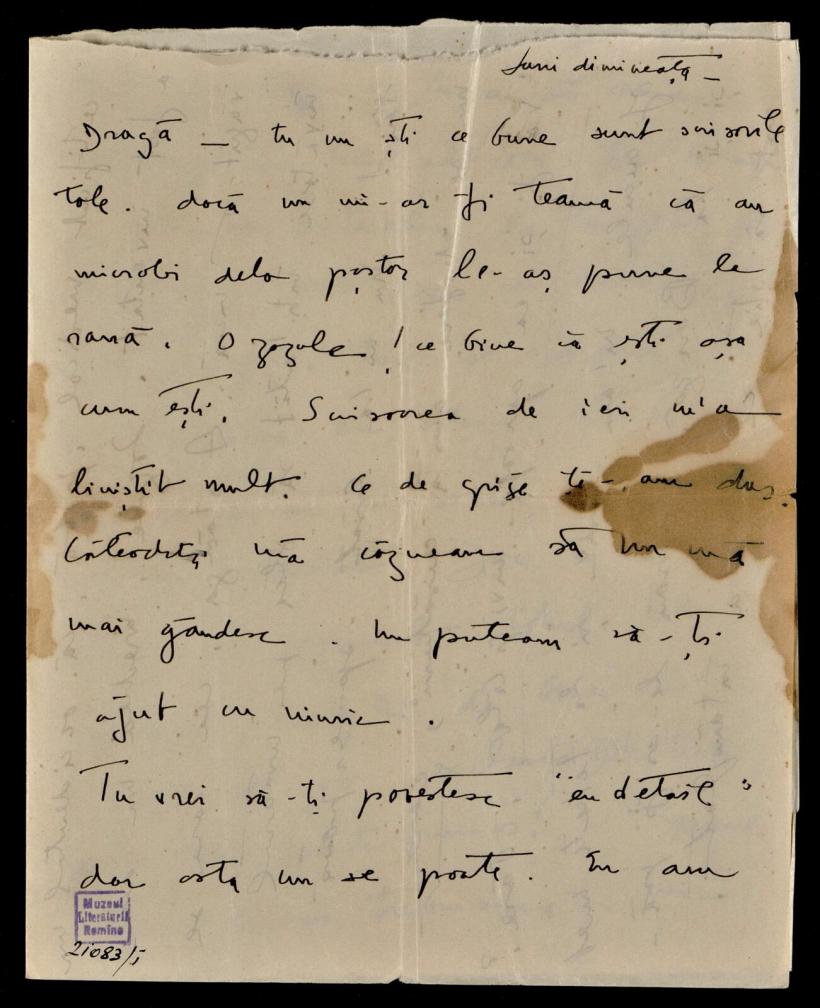 Luni dimineața –
Dragă – tu nu ști ce bune sunt scrisorile
tale. dacă nu mi-ar fi teamă că au
microbi dela poștaș le-aș pune la
rană. O gâzule ! ce bine că ești așa
cum ești. Scrisoarea de ieri m'a
liniștit mult. Ce de grije ți-am dus.
Câteodată mă căzneam să nu mă
mai gândesc. Nu puteam să-ți
ajut cu nimic.
Tu vrei să-ți povestesc "en detail"
dar asta nu se poate. Eu am
Muzeul
Literaturii
Romîne
21083/I